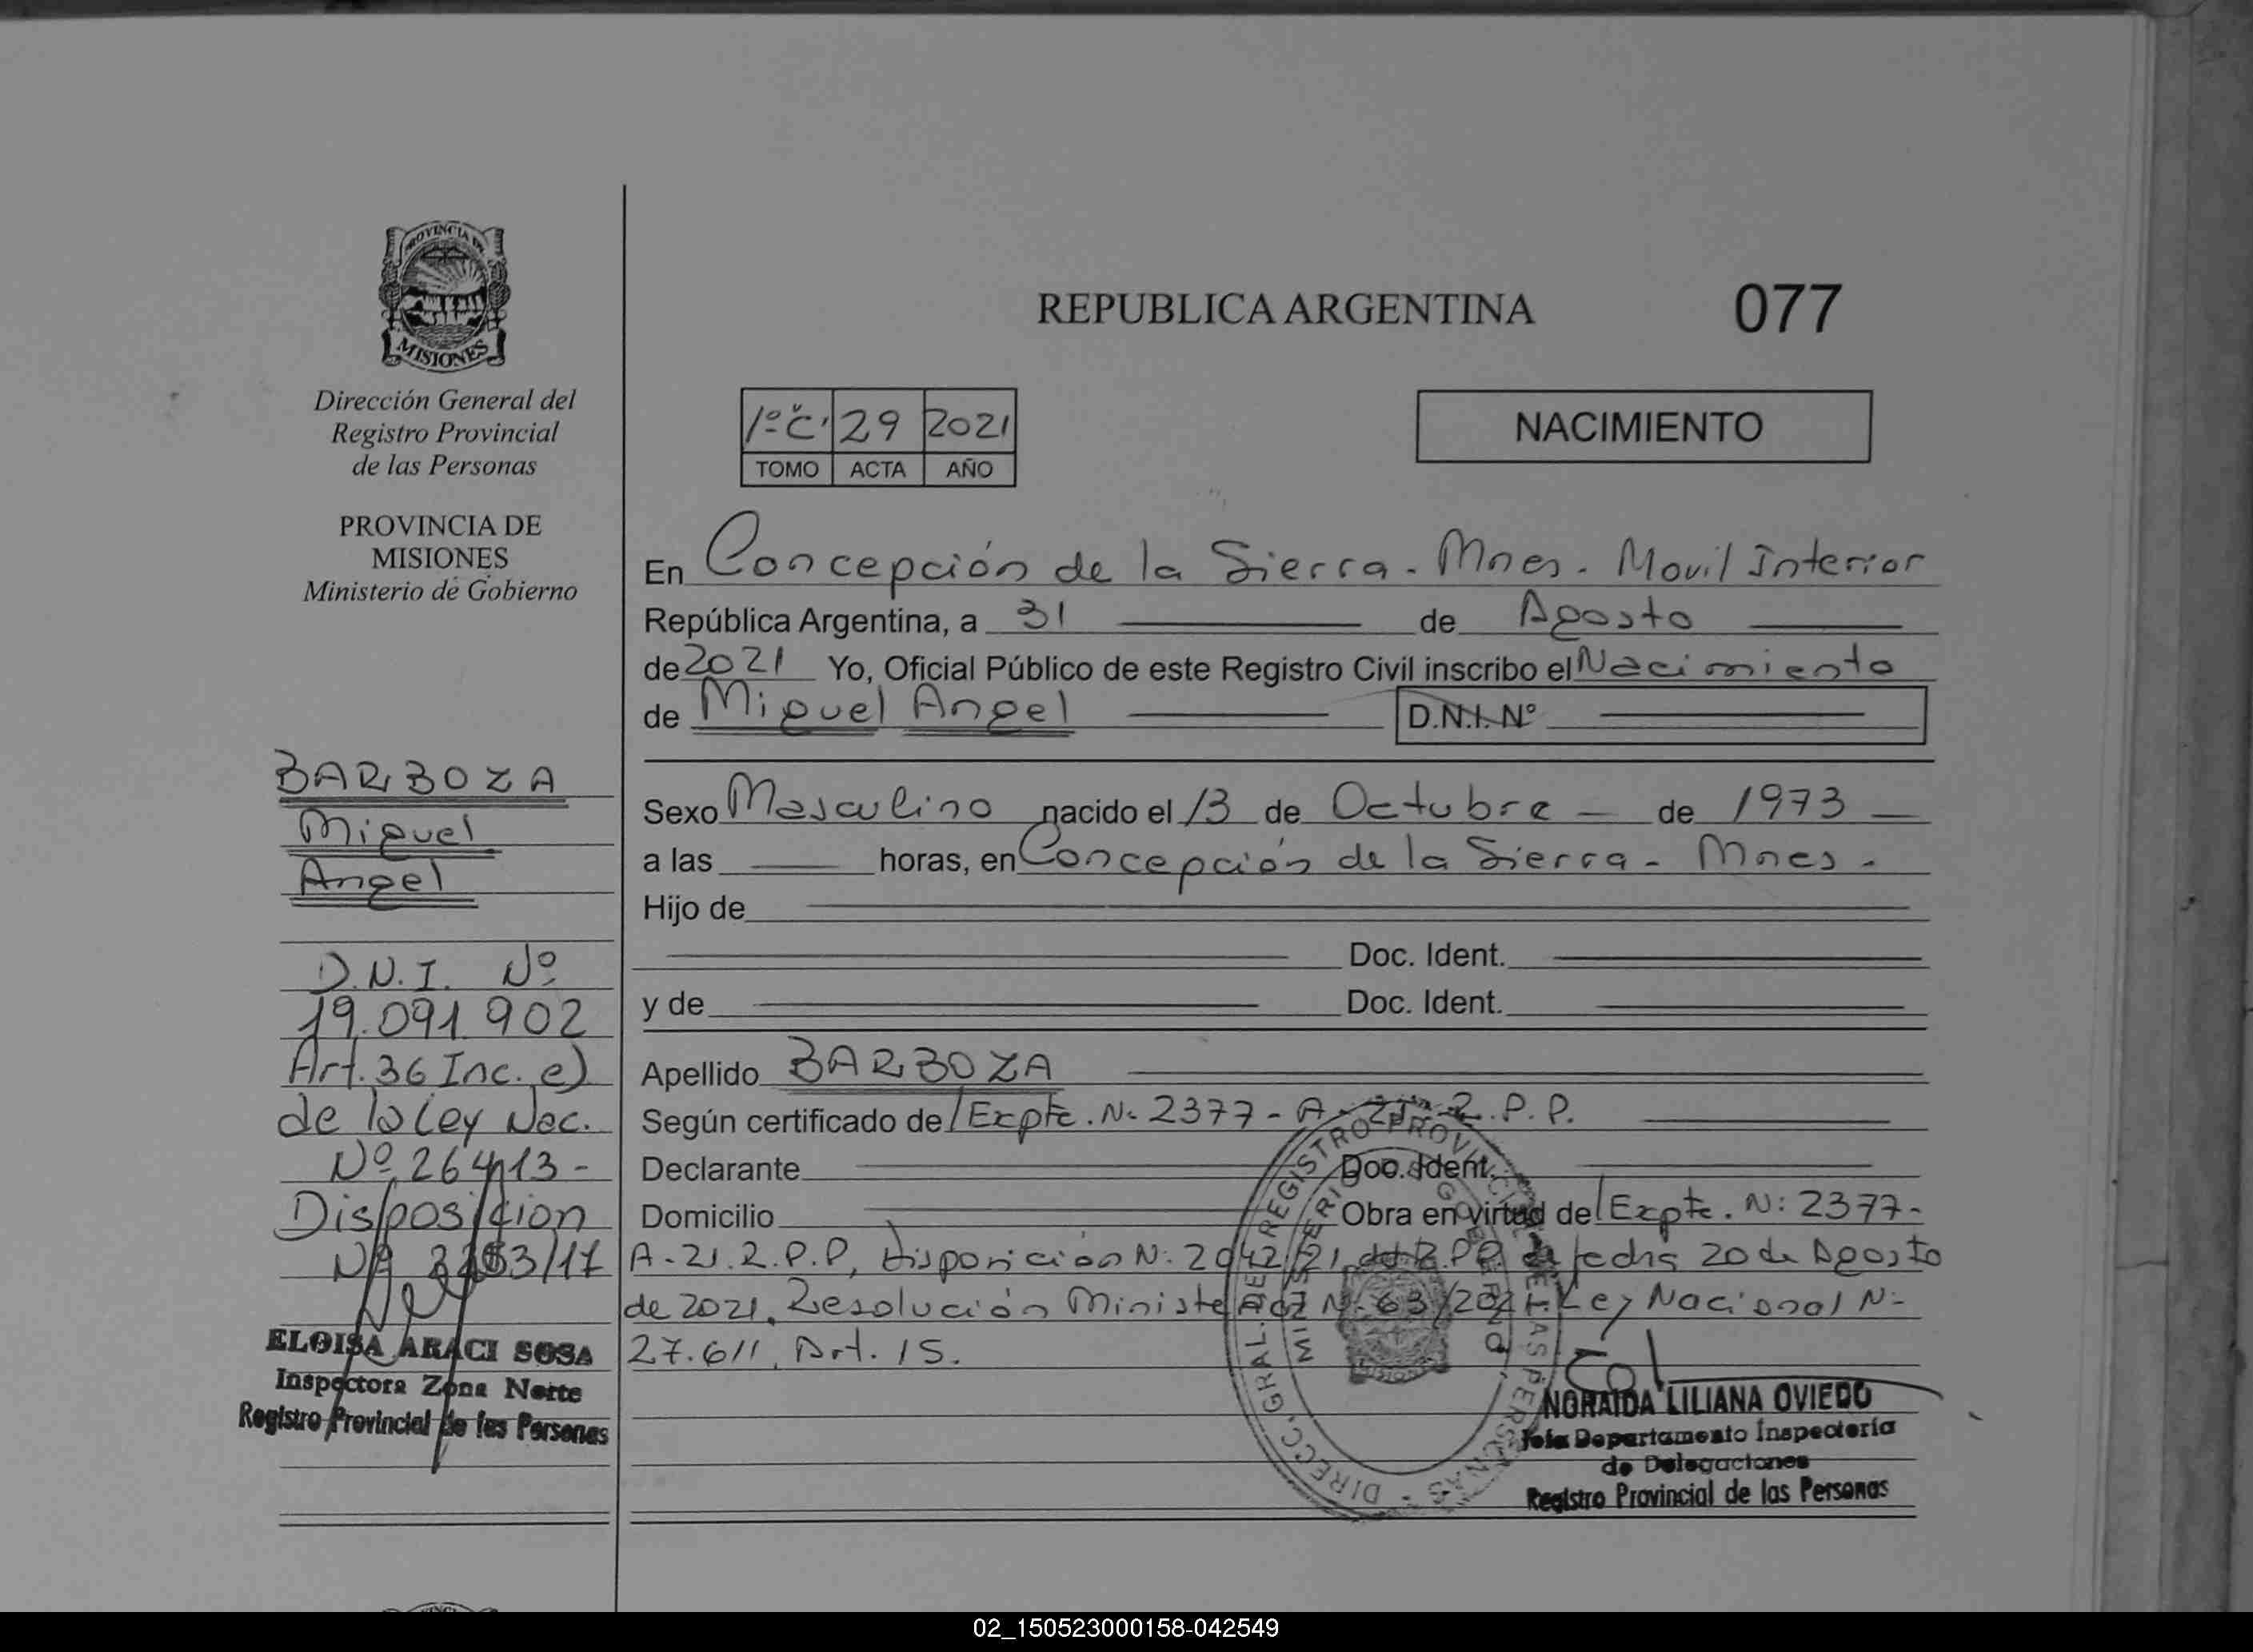 PROVINCIA DE
MISIONES
Dirección General del
Registro Provincial
de las Personas
PROVINCIA DE
MISIONES
Ministerio de Gobierno
BARBOZA
Miguel
Angel
D.N.I. Nº
19.091.902
Art. 36 Inc. e)
de la Ley Nac.
Nº 26413-
Disposicion
Nº /17
ELOISA ARACI SOSA
Inspectora Zona Norte
Registro Provincial de las Personas
REPUBLICA ARGENTINA 077
1º C. 29 2021
TOMO ACTA AÑO
NACIMIENTO
En Concepción de la Sierra - Mnes. Movil Interior
República Argentina, a 31 de Agosto
de 2021 Yo, Oficial Público de este Registro Civil inscribo el Nacimiento
de Miguel Angel D.N.I. Nº
Sexo Masculino nacido el 13 de Octubre de 1973
a las horas, en Concepción de la Sierra - Mnes.
Hijo de
Doc. Ident.
y de Doc. Ident.
Apellido BARBOZA
Según certificado de/Expte. N: 2377-A-21-R.P.P.
Declarante Doc. Ident.
Domicilio Obra en virtud del Expte. N: 2377-
A-21.R.P.P, Disposición N: 2042/21 del R.P.P. de fecha 20 de Agosto
de 2021. Resolución Ministerial N: 63/2021-Ley Nacional N:
27.611, Art. 15.
DIRECC. GRAL. DE REGISTRO PROVINCIAL DE LAS PERSONAS
MINISTERIO GOBIERNO
NORAIDA LILIANA OVIEDO
Jefa Departamento Inspectoría
de Delegaciones
Registro Provincial de las Personas
02_150523000158-042549